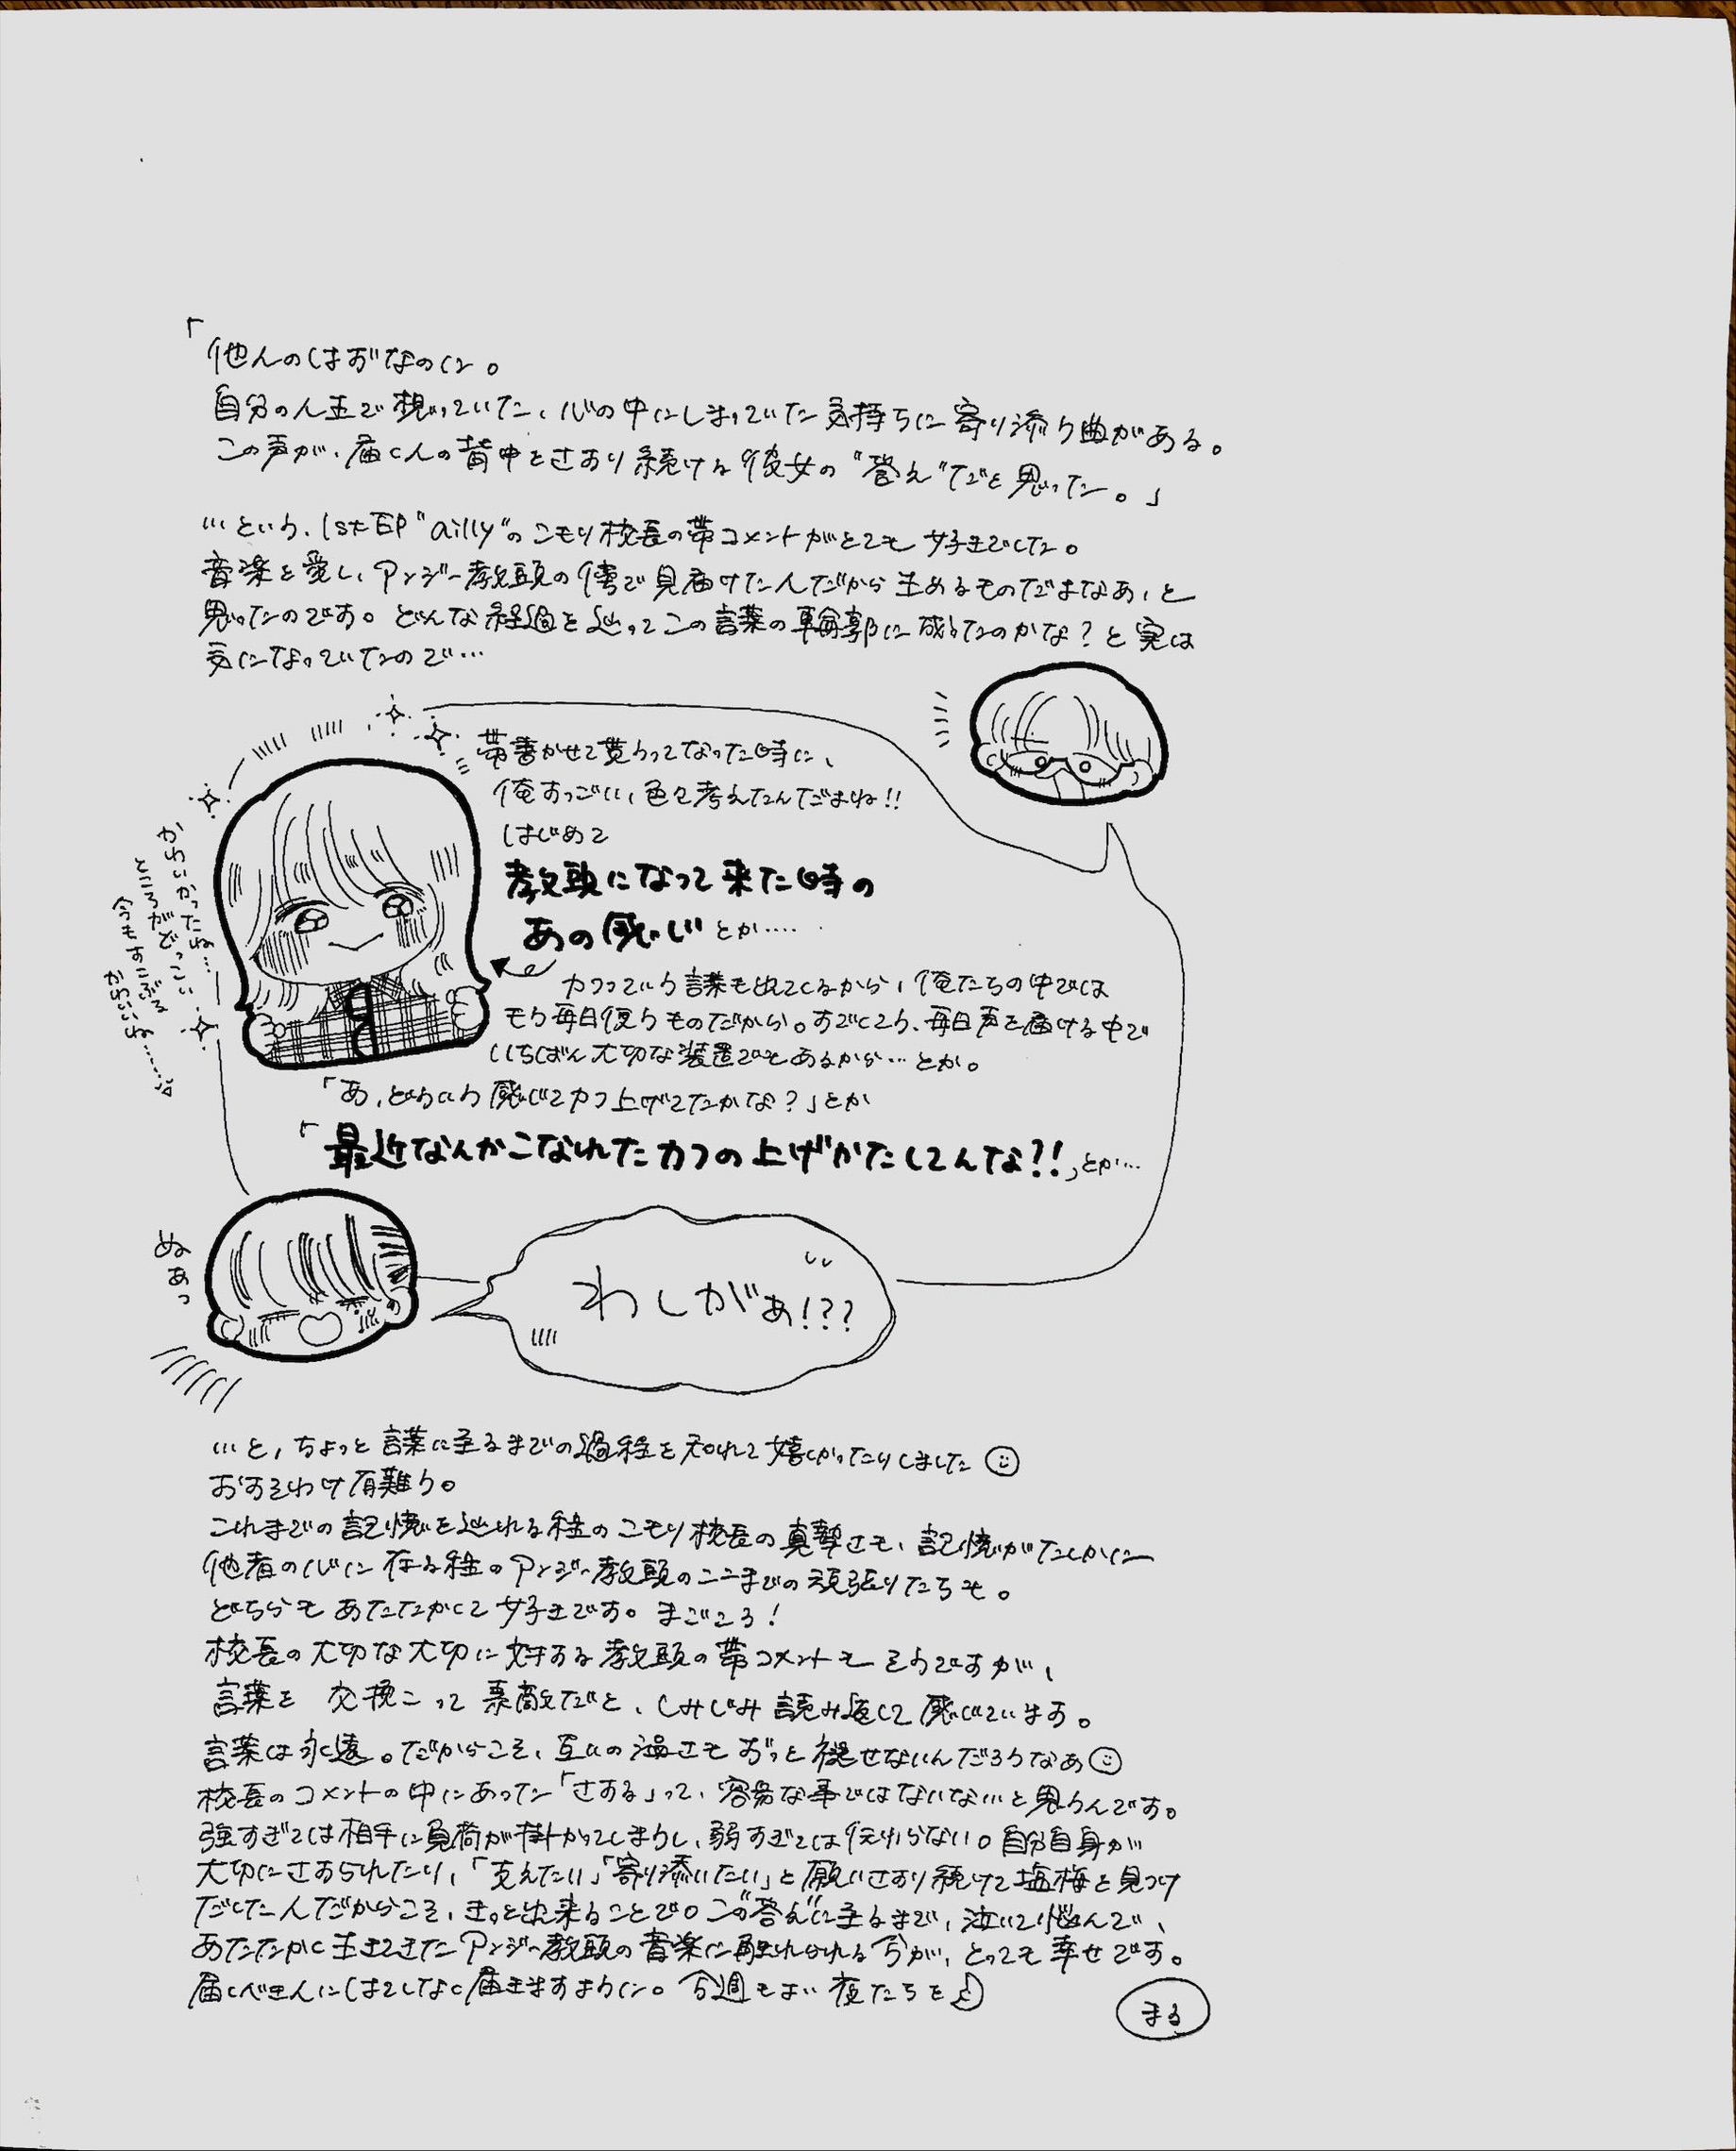 「他人のはずなのに。
自分の人生で想っていた、心の中にしまっていた気持ちに寄り添う曲がある。
この声が、届く人の背中をさすり続ける彼女の"答え"だと思った。」
…という、1st EP "ailly"のこもり校長の帯コメントがとても好きでした。
音楽を愛し、アンジー教頭の傍で見届けた人だから生めるものだよなあ、と
思ったのです。どんな経過を辿ってこの言葉の輪郭に成ったのかな？と実は
気になっていたので…
帯書かせて貰うってなった時に、
俺すっごい、色々考えたんだよね!!
はじめて
教頭になって来た時の
あの感じとか‥‥
カフっていう言葉も出てくるから、俺たちの中では
もう毎日使うものだから。すごくこう、毎日声を届ける中で
いちばん大切な装置でもあるから…とか。
「あ、どういう感じでカフ上げてたかな？」とか
「最近なんかこなれたカフの上げかたしてんな?!」とか…
かわいかったね…
ところがどっこい
今もすこぶる
かわいいね……
ぬぁっ
わしがぁ!??
…と、ちょっと言葉に至るまでの過程を知れて嬉しかったりしました
おすそわけ有難う。
これまでの記憶を辿れる程のこもり校長の真摯さも、記憶がたしかに
他者の心に在る程のアンジー教頭のここまでの頑張りたちも。
どちらもあたたかくて好きです。まごころ！
校長の大切な大切に対する教頭の帯コメントもそうですが、
言葉を 交換こって素敵だと、しみじみ読み返して感じています。
言葉は永遠。だからこそ、互いの温さもずっと褪せないんだろうなあ
校長のコメントの中にあった「さする」って、容易な事ではないな…と思うんです。
強すぎては相手に負荷が掛かってしまうし、弱すぎては伝わらない。自分自身が
大切にさすられたり、「支えたい」「寄り添いたい」と願いさすり続けて塩梅を見つけ
だした人だからこそ、きっと出来ることで。この"答え"に至るまで、泣いて悩んで、
あたたかく生きてきたアンジー教頭の音楽に触れられる今が、とっても幸せです。
届くべき人にはてしなく届きますように。今週もよい夜たちを♪
まる